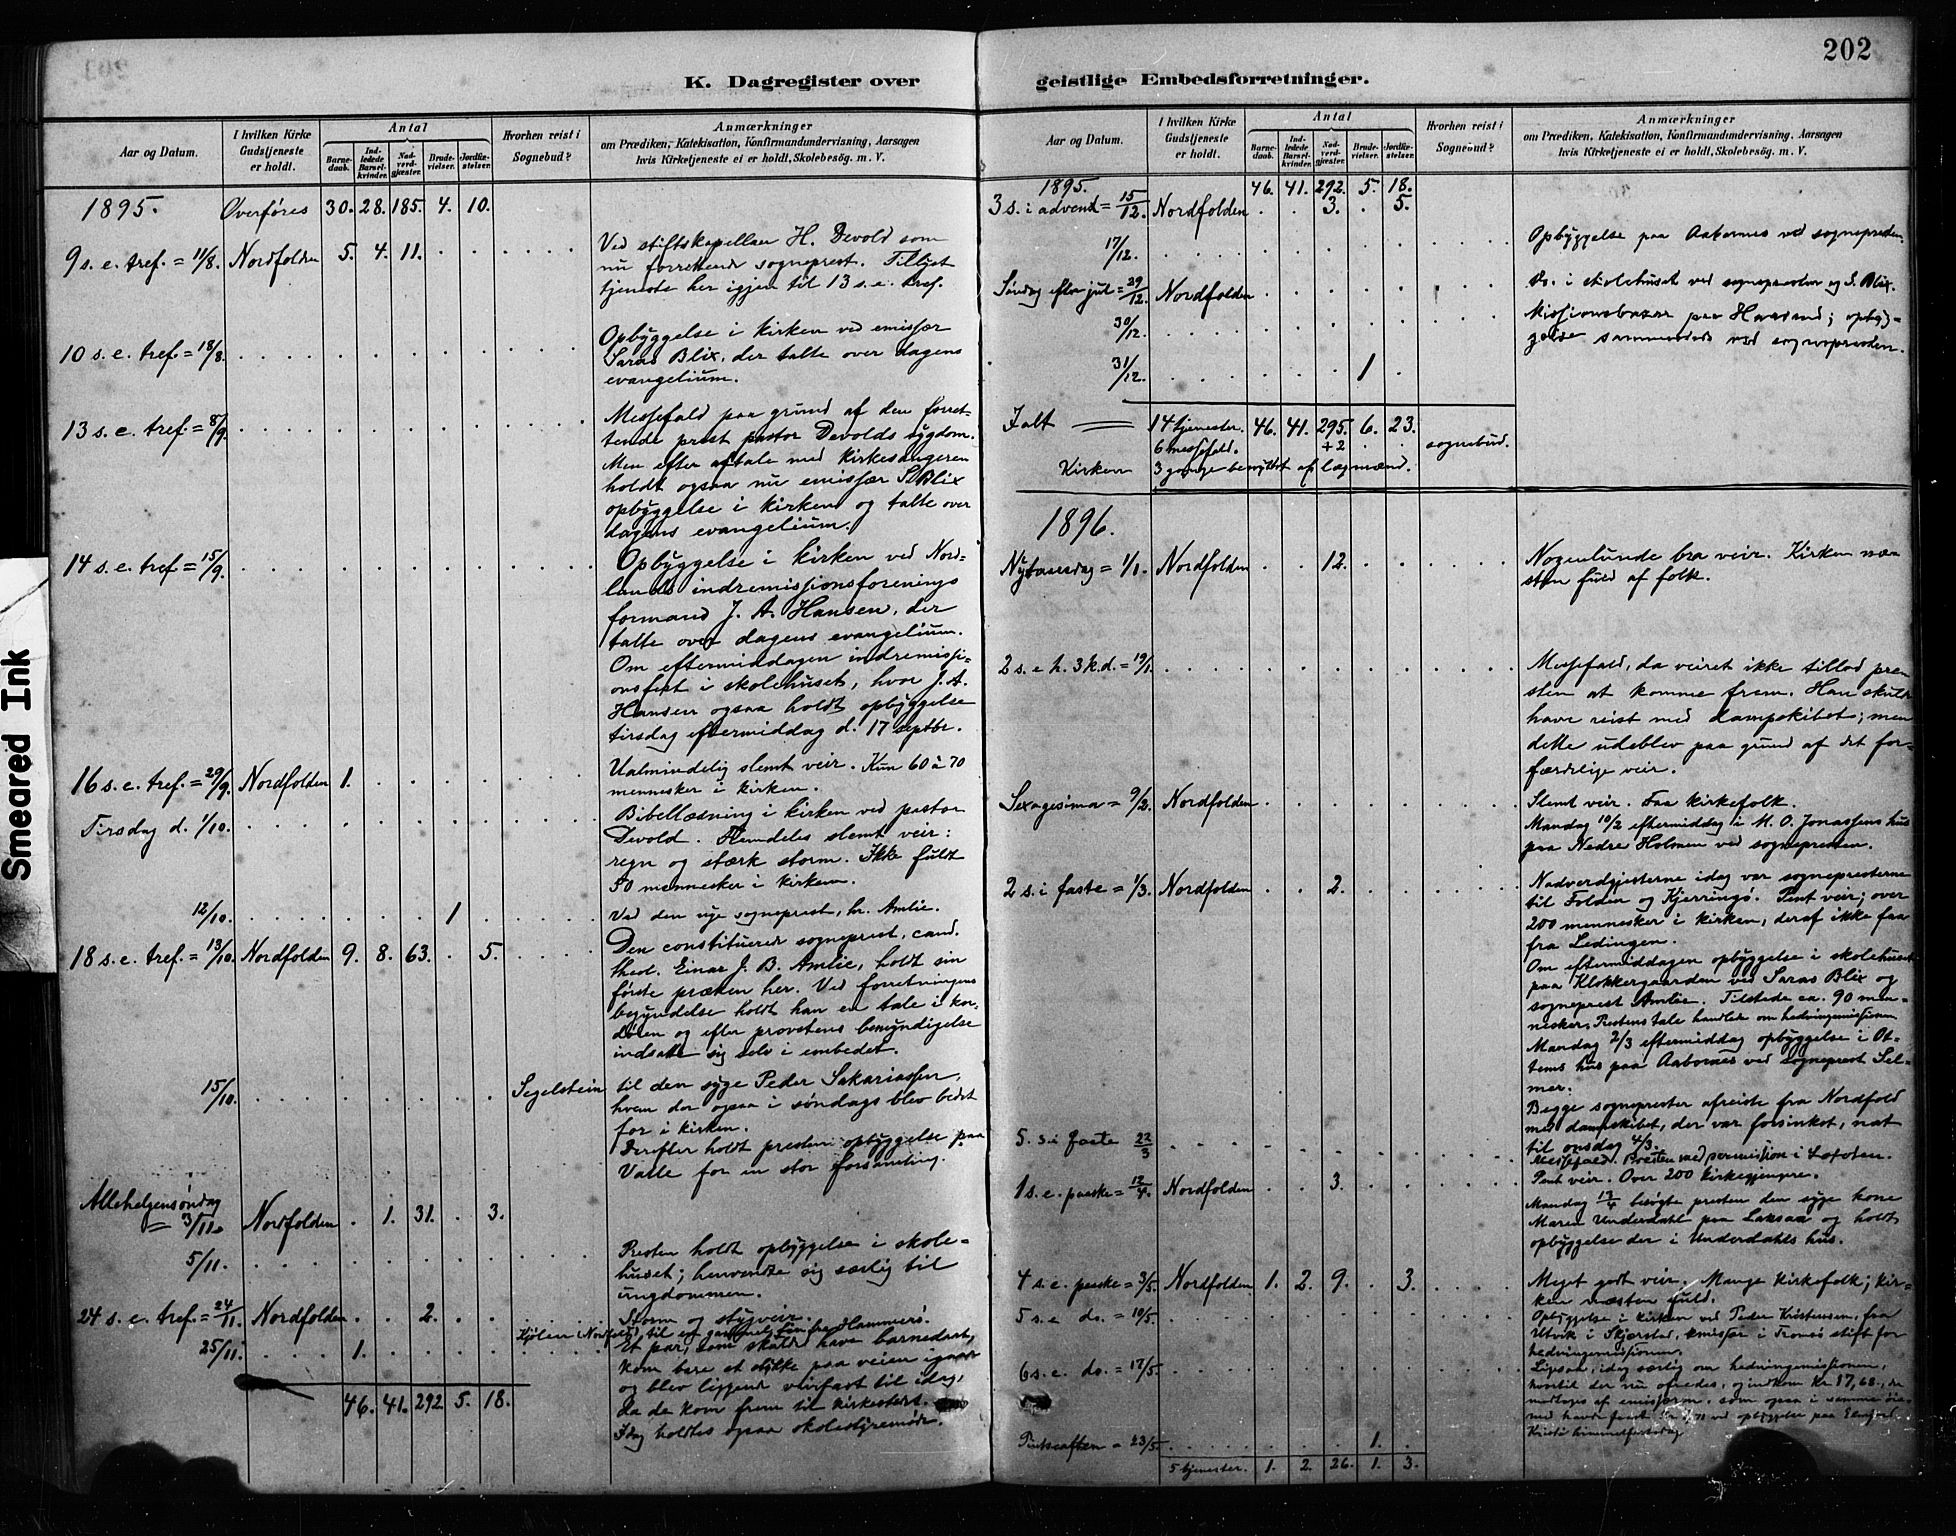 202
K. Dagregister over
Aar og Datum.
I hvilken Kirke Gudstjeneste er holdt.
Antal
Barne-daab.
Ind-ledede Barsel-kvinder.
Nad-verd-gjæster.
Brude-vielser.
Jordfæ-stelser.
Hvorhen reist i Sognebud?
Anmærkninger
om Prædiken, Katekisation, Konfirmandundervisning, Aarsagen
hvis Kirketjeneste ei er holdt, Skolebesög. m. V.
1895. Overføres 30. 28. 185. 4. 10.
9 s. e. tref. = 11/8. Nordfolden 5. 4. 11.
Ved stiftskapellan H. Devold som
nu forrettende sogneprest. Tillyst
tjeneste her igjen til 13 s. e. tref.
10 s. e. tref. = 18/8.
Opbyggelse i kirken ved emissær
Saras Blix, der talte over dagens
evangelium.
13 s. e. tref. = 8/9.
Messefald paa grund af den forret-
tende prest pastor Devolds sygdom.
Men efter aftale med kirkesangeren
holdt ogsaa nu emissær S. Blix
opbyggelse i kirken og talte over
dagens evangelium.
14 s. e. tref = 15/9.
Opbyggelse i kirken ved Nord-
lands indremissjonsforenings
formand J. A. Hansen, der
talte over dagens evangelium.
Om eftermiddagen indremissji-
onsfest i skolehuset, hvor J. A.
Hansen ogsaa holdt opbyggelse
tirsdag eftermiddag d. 17 septbr.
16 s. e. tref. = 29/9. Nordfolden 1.
Ualmindelig slemt veir. Kun 60 à 70
mennesker i kirken.
Tirsdag d. 1/10.
Bibellæsning i kirken ved pastor
Devold. Fremdeles slemt veir:
regn og stærk storm. Ikke fuldt
50 mennesker i kirken.
12/10. 1
Ved den nye sogneprest, hr. Amlie.
18 s. e. tref. = 13/10. Nordfolden 9. 8. 63. 5.
Den constituerede sogneprest, cand.
theol. Einar J. B. Amlie, holdt sin
første præken her. Ved forretningens
begyndelse holdt han en tale i kor-
døren og efter provstens bemyndigelse
indsatte sig selv i embedet.
15/10. Segelstein
til den syge Peder Sakariassen,
hvem der ogsaa i søndags blev bedet
for i kirken.
Derefter holdt presten opbyggelse paa
Valle for en stor forsamling.
Allehelgensöndag
= 3/11. Nordfolden 1. 31. 3.
5/11.
Presten holdt opbyggelse i skole-
huset; henvendte sig særlig til
ungdommen.
24 s. e. tref. = 24/11. Nordfolden 2.
Storm og stygveir.
Kjölen i Nordfold, til en gammel Finn fra Hammerö.
25/11. 1.
Et par, som skulde have barnedaab,
kom bare et stykke paa veien igaar
og blev liggende veirfast til idag,
da de kom frem til kirkestedet.
Idag holdtes ogsaa skolestyremøde.
46. 41. 292 5. 18.
geistlige Embedsforretninger.
Aar og Datum.
I hvilken Kirke Gudstjeneste er holdt.
Antal
Barne-daab.
Ind-ledede Barsel-kvinder.
Nad-verd-gjæster.
Brude-vielser.
Jordfæ-stelser.
Hvorhen reist i Sognebud?
Anmærkninger
om Prædiken, Katekisation, Konfirmandundervisning, Aarsagen
hvis Kirketjeneste ei er holdt, Skolebesög. m. V.
1895. 46. 41. 292. 5. 18.
3 s. i advend = 15/12. Nordfolden 3. 5.
17/12.
Opbyggelse paa Aakernes ved sognepresten.
Søndag efter jul = 29/12. Nordfolden
Do. i skolehuset ved sognepresten og S. Blix.
30/12.
Missionsbazar paa Havsand; opbyg-
gelse sammesteds ved sognepresten.
31/12. 1
Ialt 14 tjenester. 46. 41. 295. 6. 23.
6 messefald. +2 sognebud.
Kirken 3 gange benyttet af lægmænd.
1896.
Nytaarsdag = 1/1. Nordfolden 12.
Nogenlunde bra veir. Kirken næ-
sten fuld af folk.
2 s. e h. 3 k. d. = 19/1.
Messefald, da veiret ikke tillod pre
sten at komme frem. Han skulde
have reist med dampskibet; men
dette udeblev paa grund af det for-
færdelige veir.
Sexagesima = 9/2. Nordfolden
Slemt veir. Faa kirkefolk.
Mandag 10/2 eftermiddag i M. O. Jonassens hus
paa Nedre Holmen ved sognepresten.
2 s. i faste = 1/3. Nordfolden 2.
Nadverdgjesterne idag var sognepresterne
til Folden og Kjerringö. Pent veir; over
200 mennesker i kirken, deraf ikke faa
fra Ledingen.
Om eftermiddagen opbyggelse i skolehuset
paa Klokkergaarden ved Saras Blix og
sogneprest Amlie. Tilstede ca. 90 men-
nesker. Prestens tale handlet om hedningemissionen
Mandag 2/3 eftermiddag opbyggelse i Ot-
tems hus paa Aabornes ved sogneprest Sel-
mer.
Begge sogneprester afreiste fra Nordfold
med dampskibet, der var forsinket, nat
til onsdag 4/3.
5. s i faste 22/3
Messefald. Presten med permission i Lofoten.
1 s. e. paaske = 12/4. Nordfolden 3.
Pent veir. Over 200 kirkegjengere.
Mandag 13/4 besøgte presten den syge kone
Maren Underdahl paa Laksaa og holdt
opbyggelse der i Underdahls hus.
4 s. e. paaske = 3/5. Nordfolden 1. 2. 9. 3.
Meget godt veir. Mange kirkefolk; kir-
ken næsten fuld.
5 s. e do. = 10/5.
Opbyggelse i kirken ved Peder Kristensen, fra
Utvik i Skjerstad, emissær i Tromsö stift for
hedningemissionen.
6 s. e. do. = 17/5.
Ligesaa, idag særlig om hedningemissionen,
hvortil der nu ofredes, og indkom Kr. 17,68, der
modtoges af emissæren, som ogsaa i samme øie-
med havde faaet ved opbyggelse paa
Kristi himmelfartsdag
Pintseaften = 23/5. 1.
5 tjenester. 1. 2. 26. 1. 3.
Smeared Ink